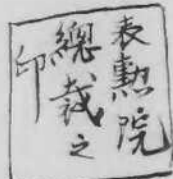 表勳院
總裁之
印